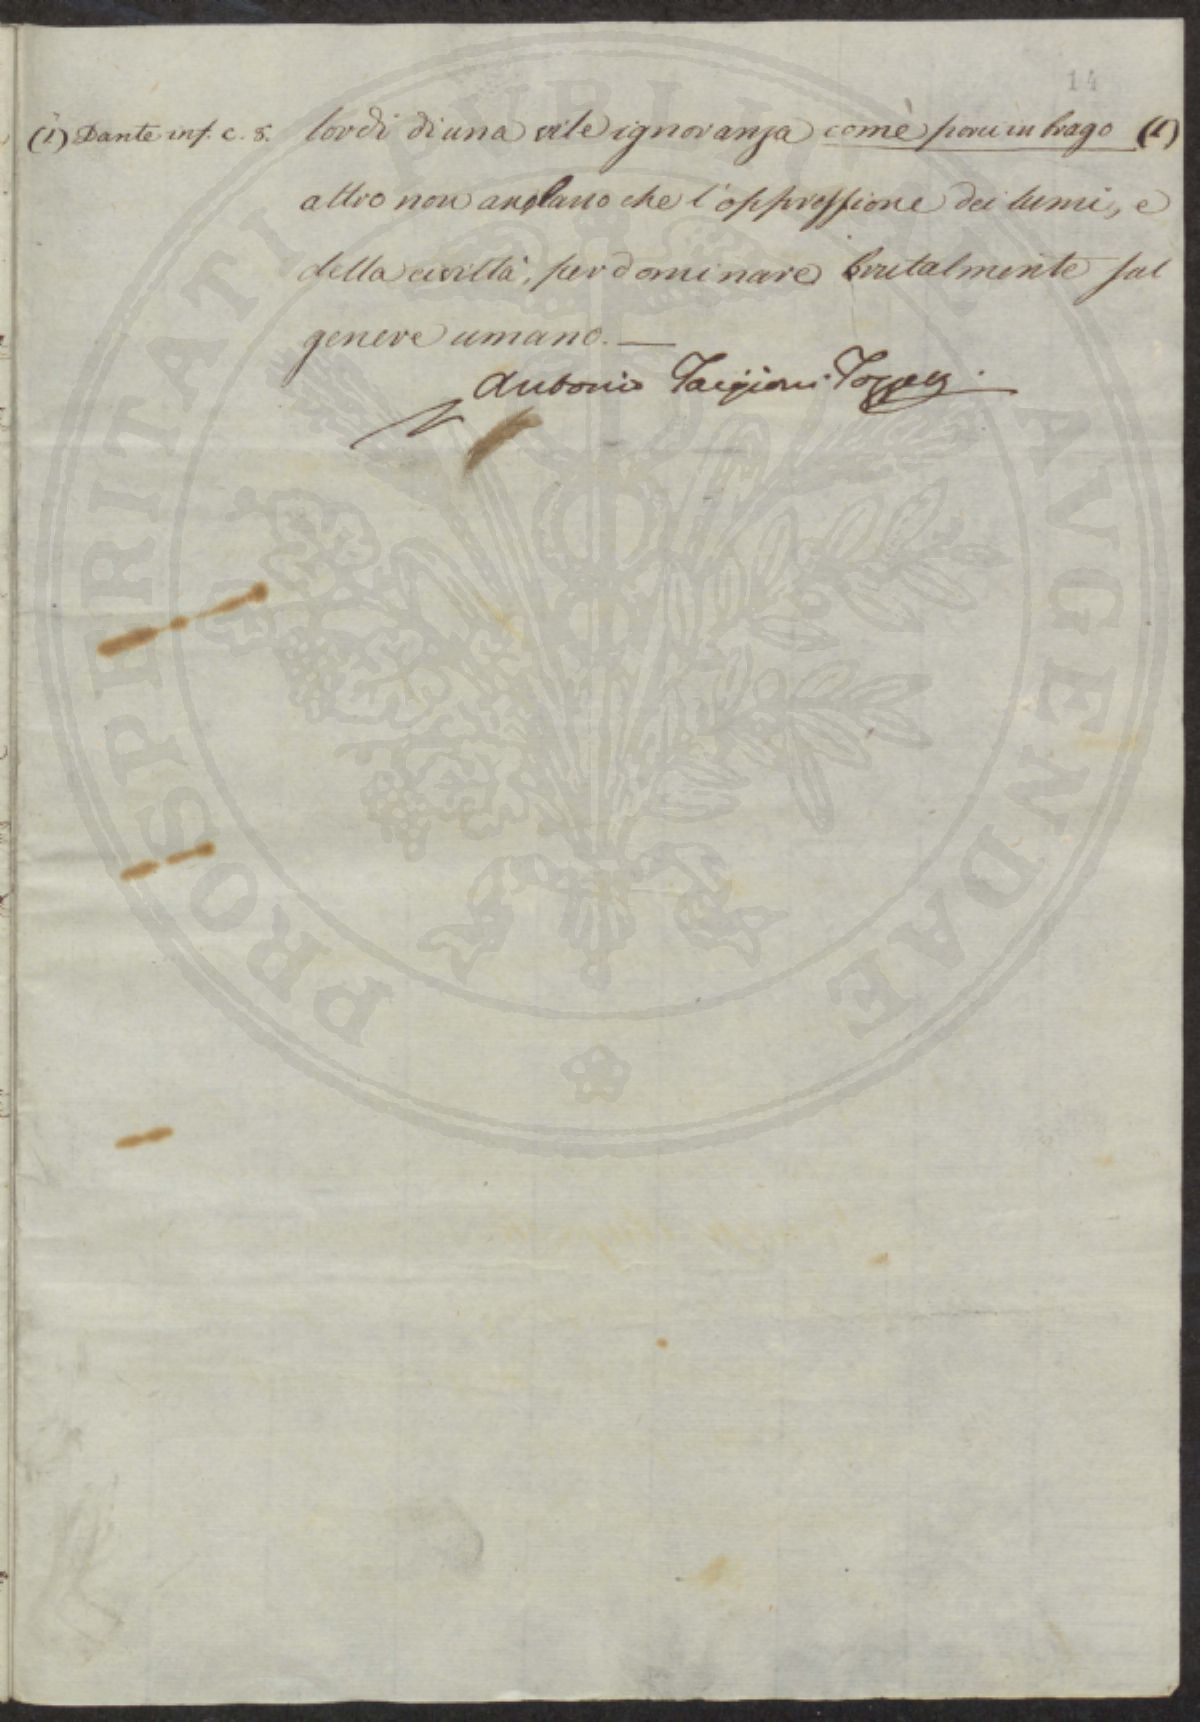 14
(1) Dante inf. c. 8. lordi di una vile ignoranza comè porci in brago (1)
altro non anelano che l'oppressione dei lumi, e
della civiltà, per dominare brutalmente sul
genere umano. —
Antonio Targioni Tozzetti.
PROSPERITATI PUBLICAE AVGENDAE